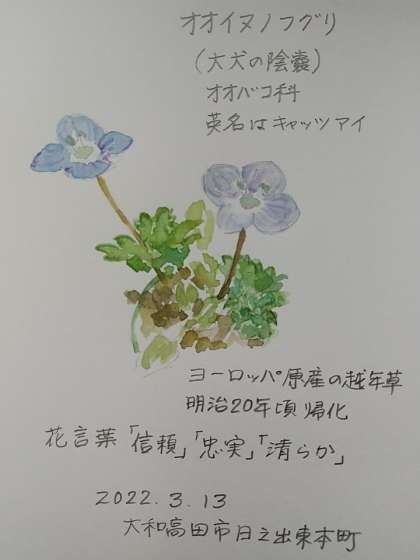 オオイヌノフグリ
(大犬の陰嚢)
オオバコ科
英名はキャッツアイ
ヨーロッパ原産の越年草
明治20年頃帰化
花言葉「信頼」「忠実」「清らか」
2022.3.13
大和高田市日之出東本町